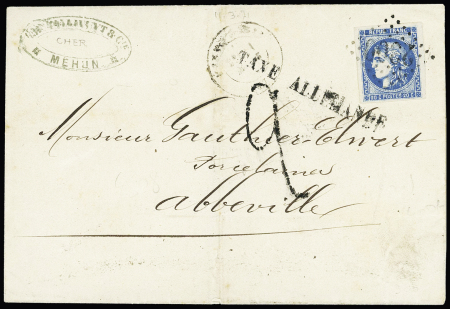 & Cie
CHER
MEHUN
TAXE ALLEMANDE
2
REPUB. FRANC.
20 c POSTES 20 c
Monsieur Gauthier Elwert
Porcelaines
Abbeville